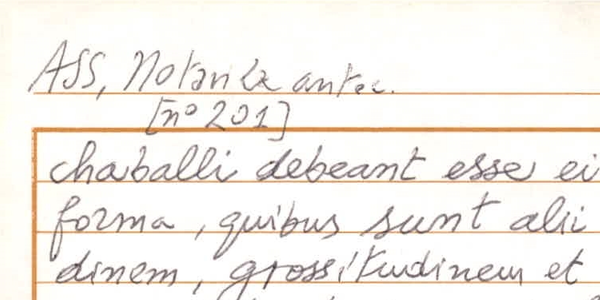 ASS, Notarile antec.
[n° 201]
chaballi debeant esse ei
forma, quibus sunt alii
dinem, grossitudinem et